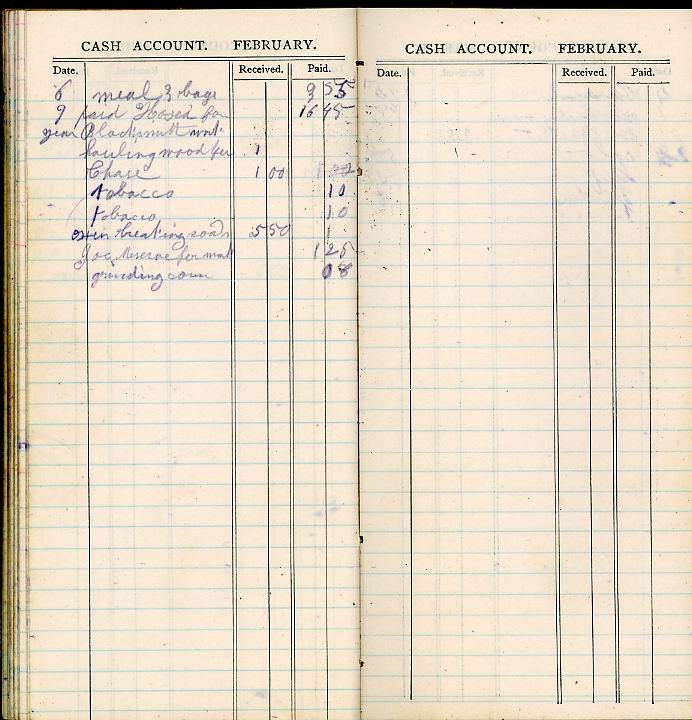 CASH ACCOUNT. FEBRUARY.
Date. Received. Paid.
6 meal 3 bags 9 55
9 paid for 16 45
year Blacksmith work
hauling wood for 1
Chase 1 00 1 00
tobacco 10
tobacco 10
oxen breaking roads 5 50 1
Joe for 1 25
grinding corn 08
CASH ACCOUNT. FEBRUARY.
Date. Received. Paid.